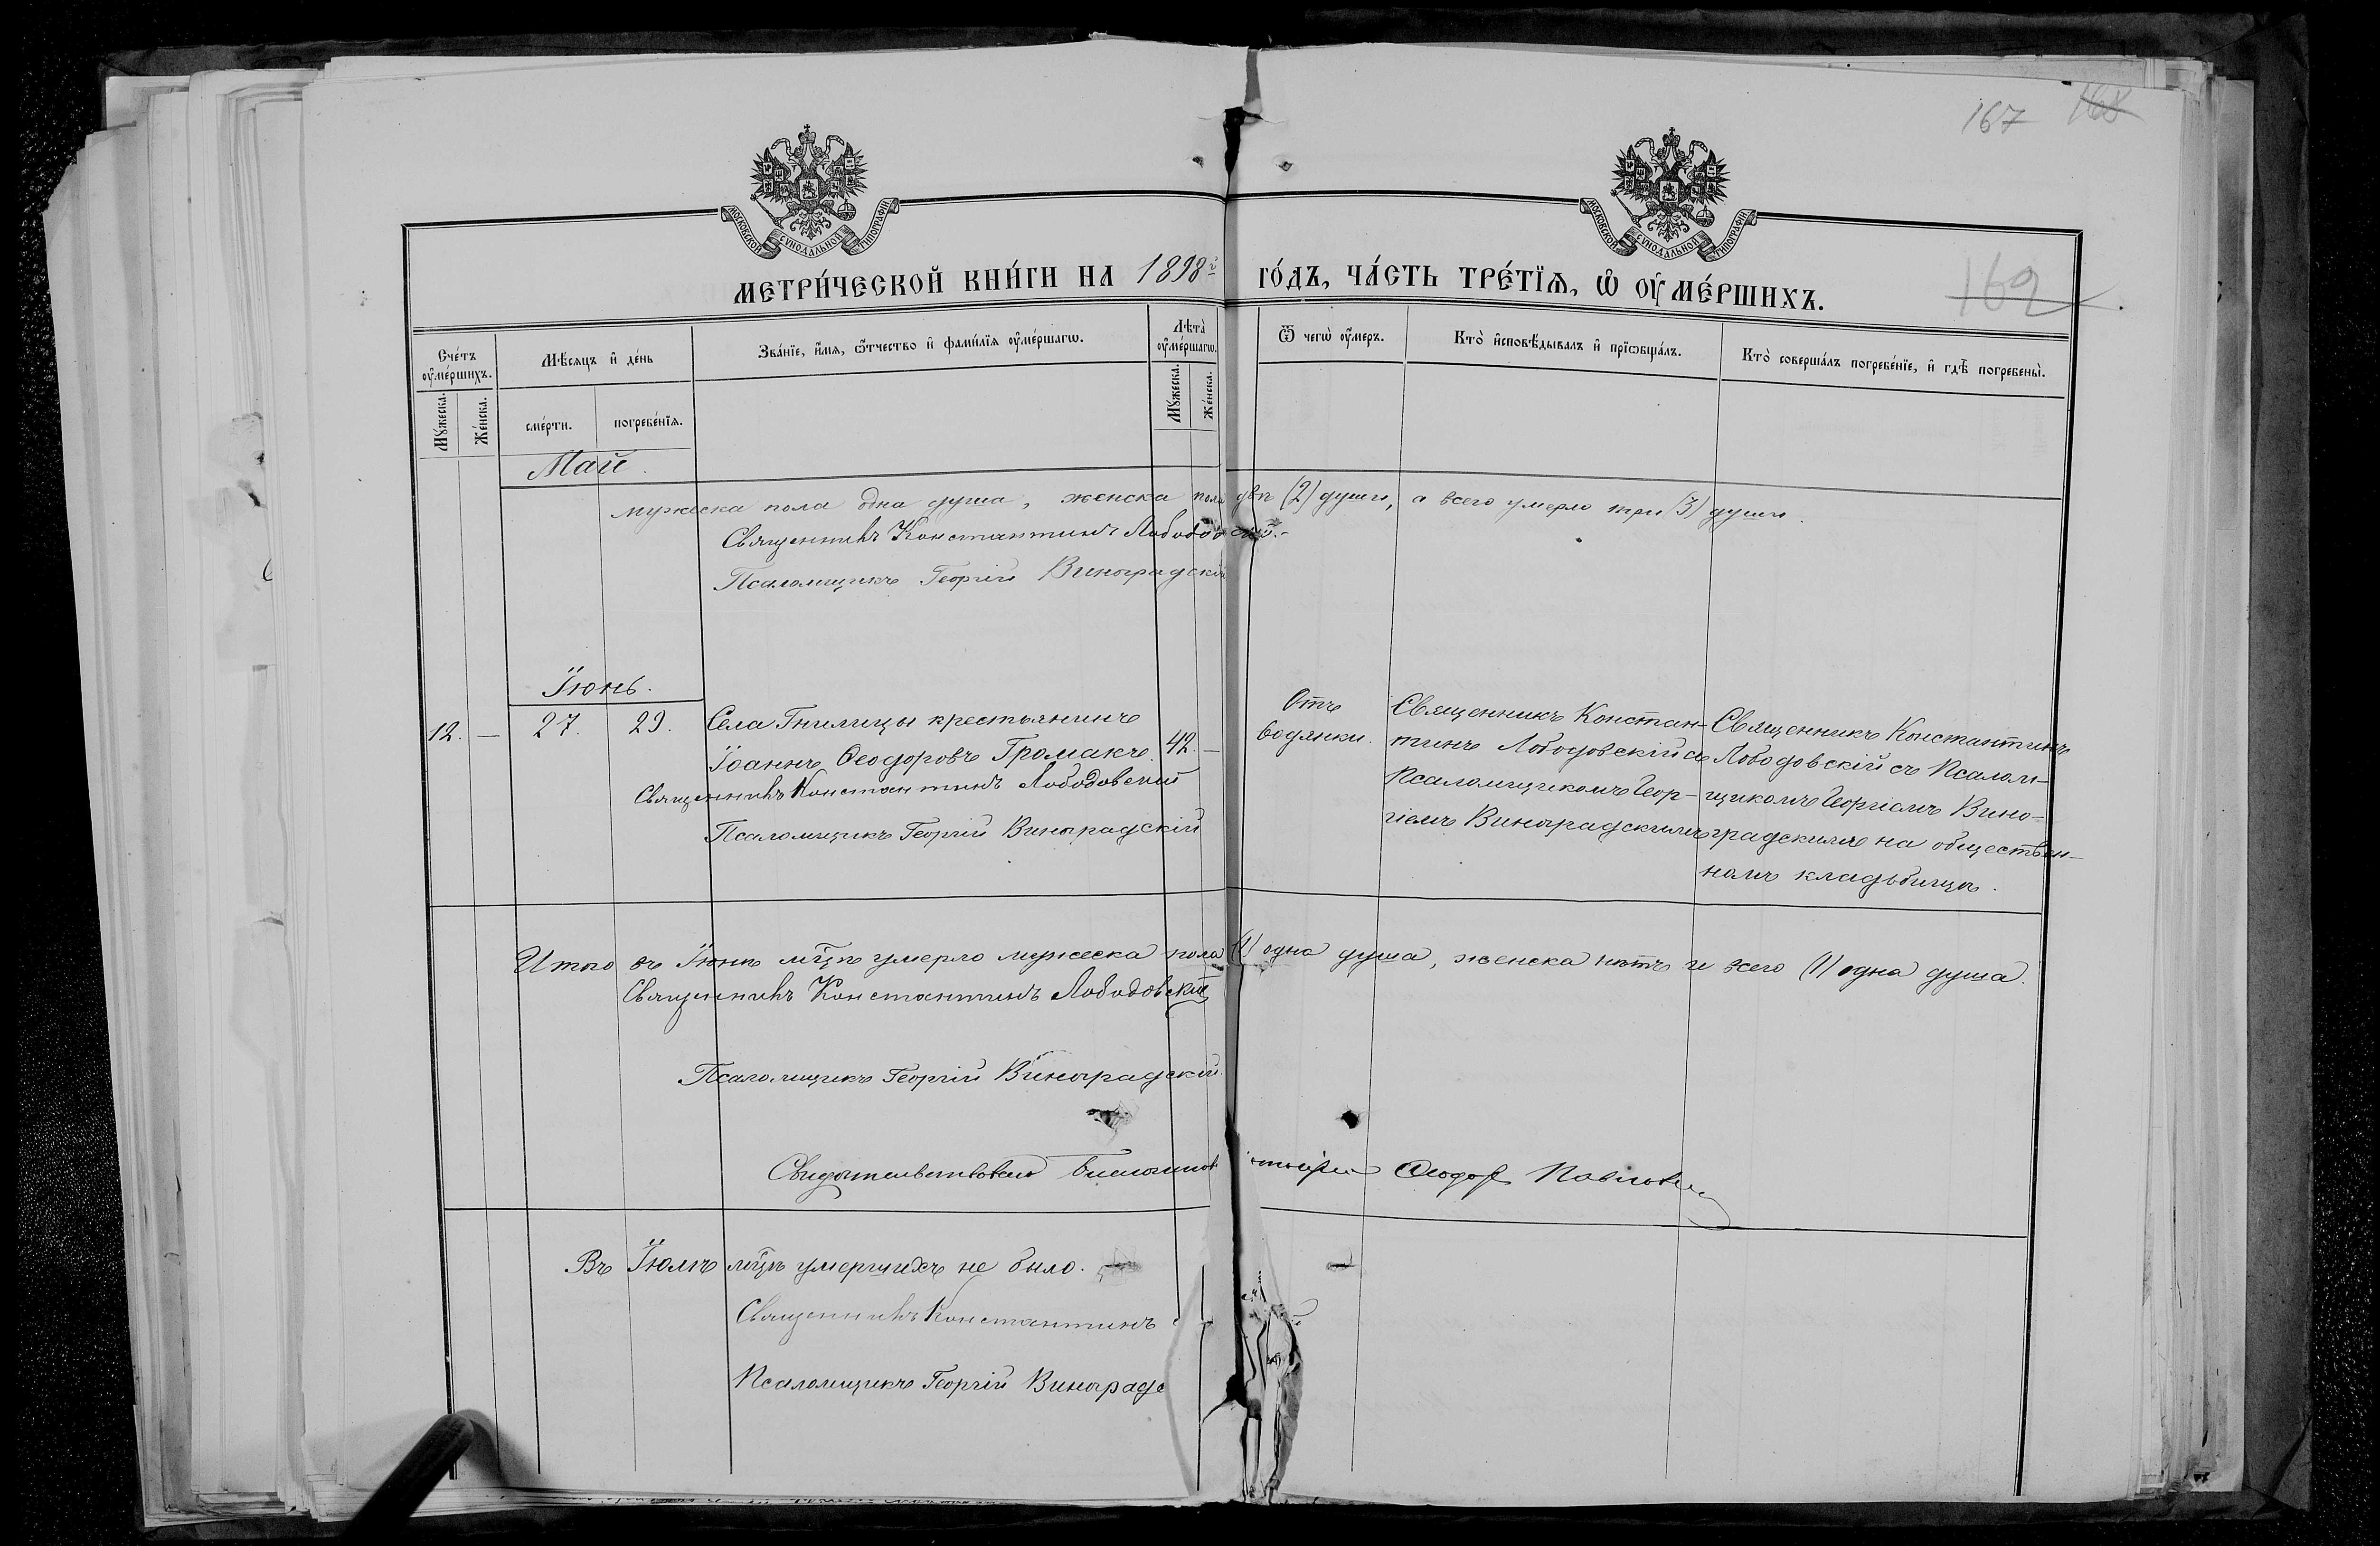 167 168
МОСКОВСКОЙ СѴНОДАЛЬНОЙ ТИПОГРАФІИ
МОСКОВСКОЙ СѴНОДАЛЬНОЙ ТИПОГРАФІИ
МЕТРИ́ЧЕСКОЙ КНИ́ГИ НА 1898й ГО́ДЪ, ЧА́СТЬ ТРЕ́ТЇѦ, Ѽ ОУ҆МЕ́РШИХЪ.
169
Сче́тъ оу҆ме́ршихъ.
Мꙋ́жеска.
Же́нска.
Мѣ́сѧцъ и҆ де́нь
сме́рти.
погребе́нїѧ.
Зва́нїе, и҆́мѧ, ѻ҆́тчество и҆ фами́лїѧ оу҆ме́ршагѡ.
Лѣ́та оу҆ме́ршагѡ.
Мꙋ́жеска.
Же́нска.
Ѿ чегѡ̀ оу҆́меръ.
Кто̀ и҆сповѣ́дывалъ и҆ прїѡбща́лъ.
Кто̀ соверша́лъ погребе́нїе, и҆ гдѣ̀ погребены̀.
Май.
мужеска пола одна душа, женска пола двѣ (2) души, а всего умерло три (3) души.
Священникъ Константинъ Лободовскій.
Псаломщикъ Георгій Виноградскій
Іюнь.
12. — 27. 29. Села Гнилицы крестьянинъ
Іоаннъ Ѳеодоровъ Громакъ. 42. —
Отъ
водянки.
Священникъ Констан-
тинъ Лободовскій съ
Псаломщикомъ Геор-
гіемъ Виноградскимъ
Священникъ Константинъ
Лободовскій съ Псалом-
щикомъ Георгіемъ Вино-
градскимъ на обществен-
номъ кладбищѣ.
Священникъ Константинъ Лободовскій
Псаломщикъ Георгій Виноградскій
Итого въ Іюнѣ мцѣ умерло мужеска пола (1) одна душа, женска нѣтъ и всего (1) одна душа.
Священникъ Константинъ Лободовскій
Псаломщикъ Георгій Виноградскій.
Свидѣтельствовалъ Ѳеодоръ
Въ Іюлѣ мцѣ умершихъ не было.
Священникъ Константинъ
Псаломщикъ Георгій Виноградс